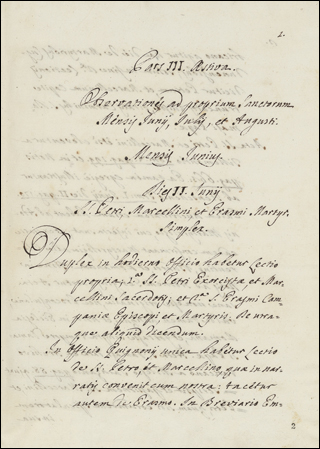 1.
Pars III. Æstiva.
Observationes ad proprium Sanctorum
Mensis Junij, Julij, et Augusti.
Mensis Junius.
Dies II. Junij
SS. Petri, Marcellini, et Erasmi Martyr.
Simplex.
Duplex in hodierno Officio habetur Lectio
propria; 1.ª SS. Petri Exorcistæ et Mar-
cellini Sacerdotis, et 2.ª S. Erasmi Cam-
paniæ Episcopi et Martyris. De utra-
que aliquid dicendum.
In Officio Quignonij unica habetur Lectio
de SS. Petro et Marcellino, quæ in nar-
ratis convenit cum nostra: tacetur
autem de Erasmo. In Breviario Em-
2